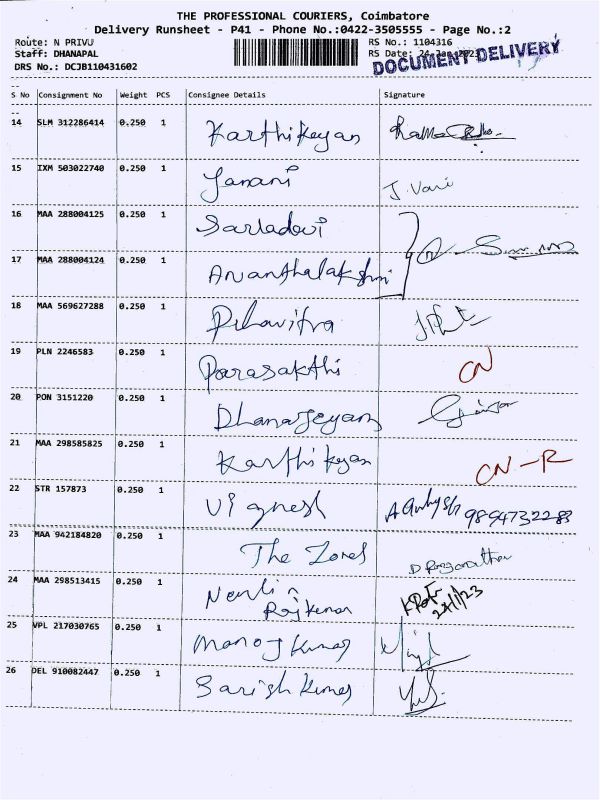 THE PROFESSIONAL COURIERS, Coimbatore
Delivery Runsheet - P41 - Phone No.:0422-3505555 - Page No.:2
Route: N PRIVU
RS No.: 1104316
Staff: DHANAPAL
RS Date:
DOCUMENT DELIVERY
DRS No.: DCJB110431602
S No Consignment No Weight PCS Consignee Details Signature
14 SLM 312286414 0.250 1 Karthikeyan
15 IXM 503022740 0.250 1 Janani J. Vani
16 MAA 288004125 0.250 1 Sarladevi
17 MAA 288004124 0.250 1 Ananthalakshmi
18 MAA 569627288 0.250 1
19 PLN 2246583 0.250 1 Parasakthi CN
20 PON 3151220 0.250 1 Dhanajeyan
21 MAA 298585825 0.250 1 Karthikeyan CN-R
22 STR 157873 0.250 1 Vignesh 9894732283
23 MAA 942184820 0.250 1 The Zones
24 MAA 298513415 0.250 1
Rajkumar
25 VPL 217030765 0.250 1 Manoj Kumar
26 DEL 910082447 0.250 1 Sarish Kumar